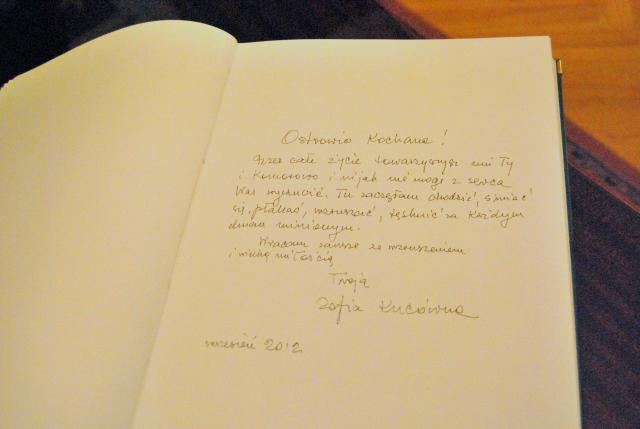 Ostrowio Kochana!
Przez całe życie towarzyszysz mi Ty
i Komorowo i nijak nie mogę z serca
Was wyrzucić. Tu zaczęłam chodzić, śmiać
się, płakać, wzruszać, tęsknić za każdym
dniem minionym.
Wracam zawsze ze wzruszeniem
i wielką miłością
Twoja
Zofia Kucówna
wrzesień 2012